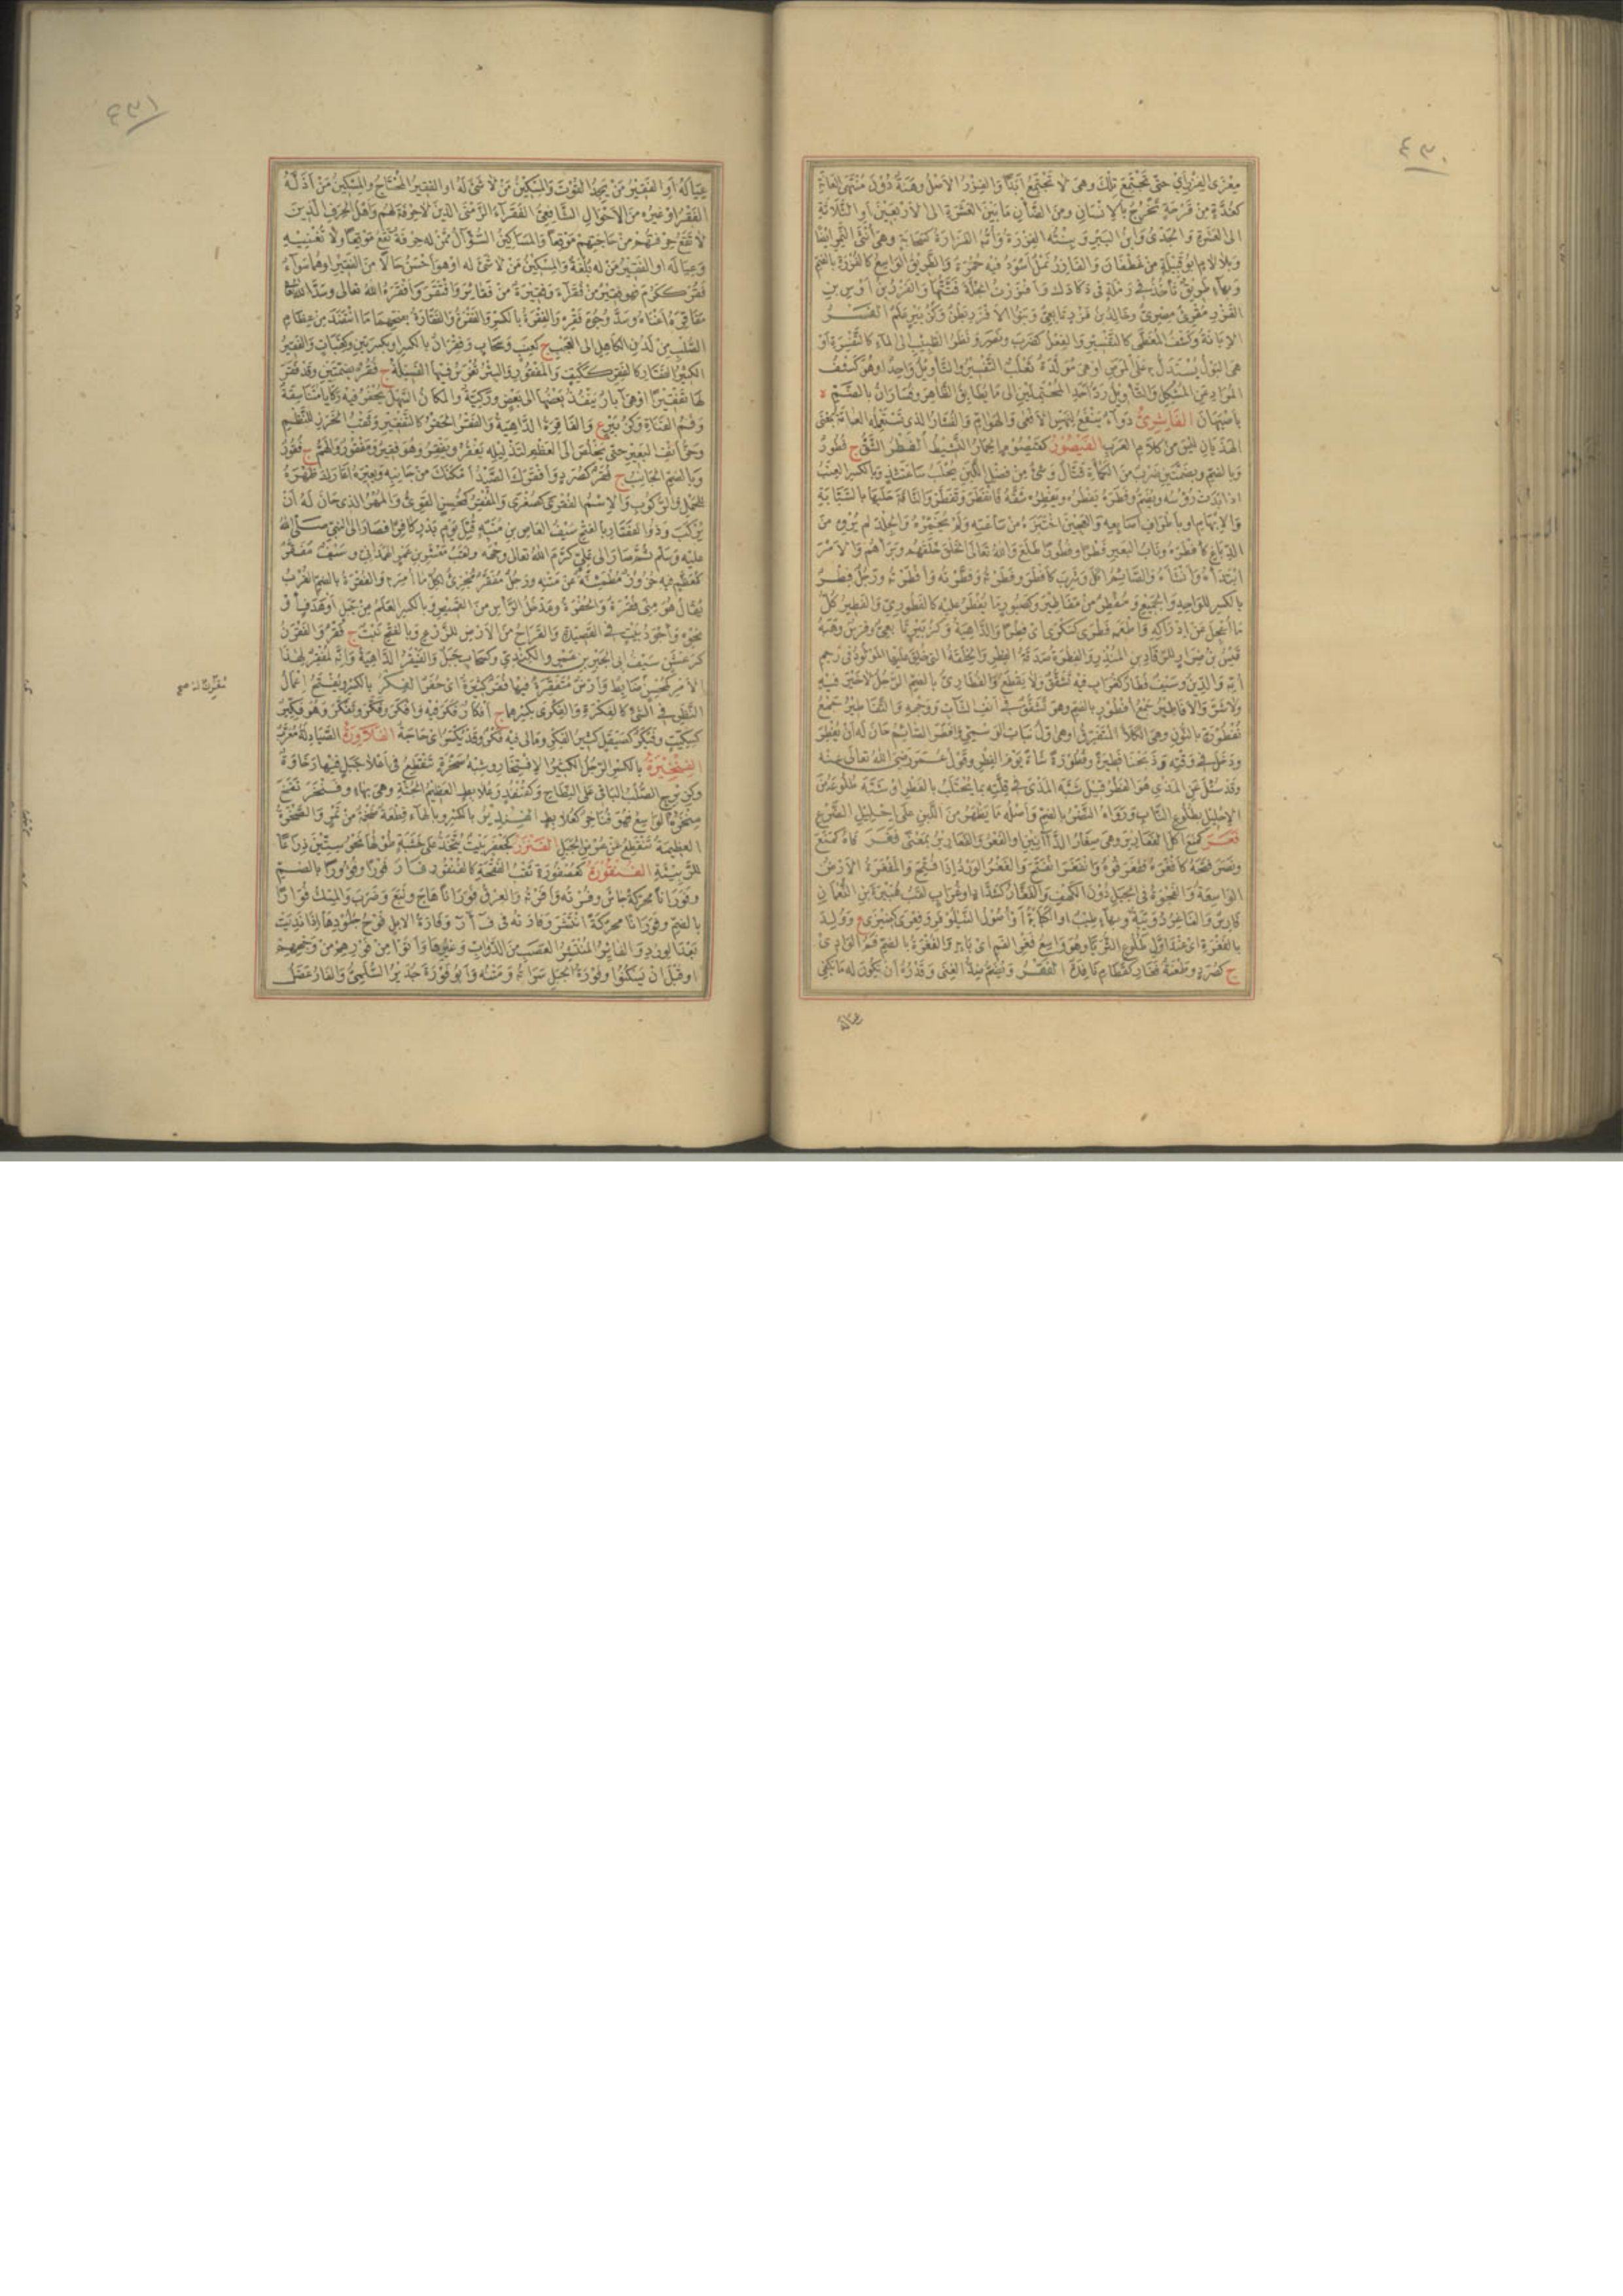 ٤٣٠
مِعْزَى الفِزْرِ أي حتى تجتمع تلك وهي لا تجتمع ابدا والفِزْرُ الاصل وهَنَةٌ دون منتهى العانة
كغُدَّة من قرحة تخرج بالانسان ومن الضأن ما بين العشرة الى الاربعين او الثلاثة
الى العشرة والجَدْىُ وابن الببر وبنته الفِزْرَة وأمه الفَزَارة كسحابة وهي أنثى النمر ايضا
وبلا لام ابو قبيلة من غطفان والفازر نمل اسود فيه حمرة والطريق الواسع كالفُزْرَة بالضم
وبهاء طريق تأخذ في رملة في دكادك وأفزرت الجلة فتّتها والفزر بن اوس بن
الفزر مقرئ مصرى وخالد بن فزر تابعي وبنو الافزر بطن وكزبير علم الفَسْرُ
الابانة وكشف المغطى كالتفسير والفعل كضرب ونصر ونظر الطبيب الى الماء كالتفسرة او
هي البول يستدل به على المرض او هي مولدة ثعلب التفسير والتأويل واحد او هو كشف
المراد عن المشكل والتأويل رد احد المحتملين الى ما يطابق الظاهر وفساران بالضم ة
باصبهان الفاشِرِىُّ دواء ينفع لنهس الافعى والهوام والفشار الذي تستعمله العامة بمعنى
الهذيان ليس من كلام العرب الفَيْصُورُ كقيصوم الحمار النشيط الفَطْرُ الشق ج فطور
وبالضم وبضمتين ضرب من الكمأة قتال وشئ من فضل اللبن يحلب ساعتئذ وبالكسر العنب
اذا بدت رؤسه ويضم وفطره يفطره ويفطره شقه فانفطر وتفطر والناقة حلبها بالسبابة
والابهام او باطراف اصابعه والعجين اختبزه من ساعته ولم يخمره والجلد لم يروه من
الدباغ كافطره وناب البعير فطرا وفطورا طلع والله تعالى الخلق خلقهم وبرأهم والامر
ابتدأه وانشأه والصائم اكل وشرب كأفطر وفطرته وفطّرته وافطرته ورجل فطر
بالكسر للواحد والجميع ومفطر من مفاطير وكصبور ما يفطر عليه كالفطورى والفطير كل
ما أعجل عن ادراكه واطعمه فطرى كسكرى اى فطيرا والداهية وكزبير تابعي وفرس وهبه
قيس بن ضرار للرقاد بن المنذر والفطرة صدقة الفطر والخلقة التي خلق عليها المولود في رحم
امه والدين وسيف فطار كغراب فيه تشقق ولا يقطع والفطاري بالضم الرجل لا خير فيه
ولا شر والافاطير جمع افطور بالضم وهو تشقق في انف الشاب ووجهه والنفاطير جمع
نفطورة بالنون وهي الكلأ المتفرق او هي اول نبات الوسمي وافطر الصائم حان له ان يفطر
ودخل في وقته وذبحنا فطيرة وفطورة شاة يوم الفطر وقول عمر رضي الله تعالى عنه
وقد سئل عن المذي هو الفطر قيل شبه المذي في قلته بما يحتلب بالفطر او شبه طلوعه من
الاحليل بطلوع الناب ورواه النضر بالضم واصله ما يظهر من اللبن على احليل الضرع
فَغَرَ كمنع أكل الفعارير وهي صغار الذآنين او الفعر والفعارير بمعنى فَغَرَ فاه كمنع
ونصر فتحه كافغره ففغر فوه وانفغر انفتح والفغر الورد اذا فتح والمفغرة الارض
الواسعة والفجوة في الجبل دون الكهف والفغار كشداد او غراب لقب هبيرة بن النعمان
فارس والفاغر دويبة وبهاء طيب او الكبابة او اصول النيلوفر وفغرى كسكرى ع وولد
بالفغرة اى عند اول طلوع الثريا وهو واسع فغر الفم اى بابه والفغرة بالضم فم الوادى
ج كصرد وطعنة فغار كقطام نافذة الفَقْرُ ويضم ضد الغنى وقدره ان يكون له ما يكفى
عياله
٤٣١
عياله او الفقير من يجد القوت والمسكين من لا شئ له او الفقير المحتاج والمسكين من اذله
الفقر او غيره من الاحوال الشافعي الفقراء الزمنى الذين لا حرفة لهم واهل الحرف الذين
لا تقع حرفتهم من حاجتهم موقعا والمساكين السؤال ممن له حرفة تقع موقعا ولا تغنيه
وعياله او الفقير من له بلغة والمسكين من لا شئ له او هو احسن حالا من الفقير او هما سواء
فقر ككرم فهو فقير من فقراء وفقيرة من فقائر وافتقر وافقره الله تعالى وسد الله
مفاقره اغناه وسد وجوه فقره والفقرة بالكسر والفقرة والفقارة بفتحهما ما انتضد من عظام
الصلب من لدن الكاهل الى العجب ج كعنب وسحاب وفقران بالكسر او بكسرتين وكعنبات والفقير
الكسير الفقار كالفقر ككتف والمفقور والبئر تغرس فيها الفسيلة ج فقر بضمتين وقد فقر
لها تفقيرا او هي آبار ينفذ بعضها الى بعض وركية والمكان السهل تحفر فيه ركايا متناسقة
وفم القناة وكزبير ع والفاقرة الداهية والفقر الحفر كالتفقير وثقب الخرز للنظم
وحز انف البعير حتى يخلص الى العظم لتذليله يفقر ويفقر وهو فقير ومفقور والهم ج فقور
وبالضم الجانب ج فقر كصرد وافقرك الصيد امكنك من جانبه وبعيره اعارك ظهره
للحمل والركوب والاسم الفقرى كصغرى والمفقر كمحسن القوى والمهر الذي حان له ان
يركب وذو الفقار بالفتح سيف العاص بن منبه قتل يوم بدر كافرا فصار الى النبي صلى الله
عليه وسلم ثم صار الى علي كرم الله تعالى وجهه ولقب معشر بن عمرو الهمداني وسيف مفقر
كمعظم فيه حزوز مطمئنة عن متنه ورجل مفقر مجزئ لكل ما أمر به والفقرة بالضم القرب
يقال هو مني فقرة والحفرة ومدخل الرأس من القميص وبالكسر العلم من جبل او هدف او
نحوه واجود بيت في القصيدة والقراح من الارض للزرع وبالفتح نبت ج فقر والفقرن
كرعشن سيف ابي الخير بن عمرو الكندي وكسحاب جبل والفيقر الداهية وانه لمفقر لهذا
الامر كمحسن ضابط وارض متفقرة فيها فقر كثيرة اى حفر الفِكْرُ بالكسر ويفتح إعمال
النظر في الشئ كالفكرة والفكرى بكسرهما ج افكار فكر فيه وافكر وفكر وتفكر وهو فكير
كسكيت وفيكر كصيقل كثير الفكر ومالى فيه فكر وقد يكسر اى حاجة الفَلاوِرَةُ الصيادلة معرب
الفِنْخِيرَةُ بالكسر الرجل الكثير الافتخار وشبه صخرة تنقطع في اعلا جبل فيها رخاوة
وكزبرج الصلب الباقي على النكاح وكقنفذ وعلابط العظيم الجثة وهي بهاء وفنخر نفخ
منخره الواسع فهو فناخر كعلابط الفِنْدِيرُ بالكسر وبالهاء قطعة ضخمة من تمر والصخرة
العظيمة تنقطع عن عرض الجبل الفَنْزَرُ كجعفر بيت يتخذ على خشبة طولها نحو ستين ذراعا
للربيئة الفُنْقُورَةُ كعصفورة ثقب الفقحة كالفنقور فار فورا وفؤورا بالضم
وفورانا محركة جاش وفرته وافرته والعرق فورانا هاج ونبع وضرب والمسك فوارا
بالضم وفورانا محركة انتشر وفارته في ف أ ر وفارة الابل فوح جلودها اذا نديت
بعد الورد والفائر المنتشر العصب من الدواب وغيرها وأتوا من فورهم من وجههم
او قبل ان يسكنوا وفورة الجبل سراته ومتنه وابو فورة حدير السلمي والفار عضل